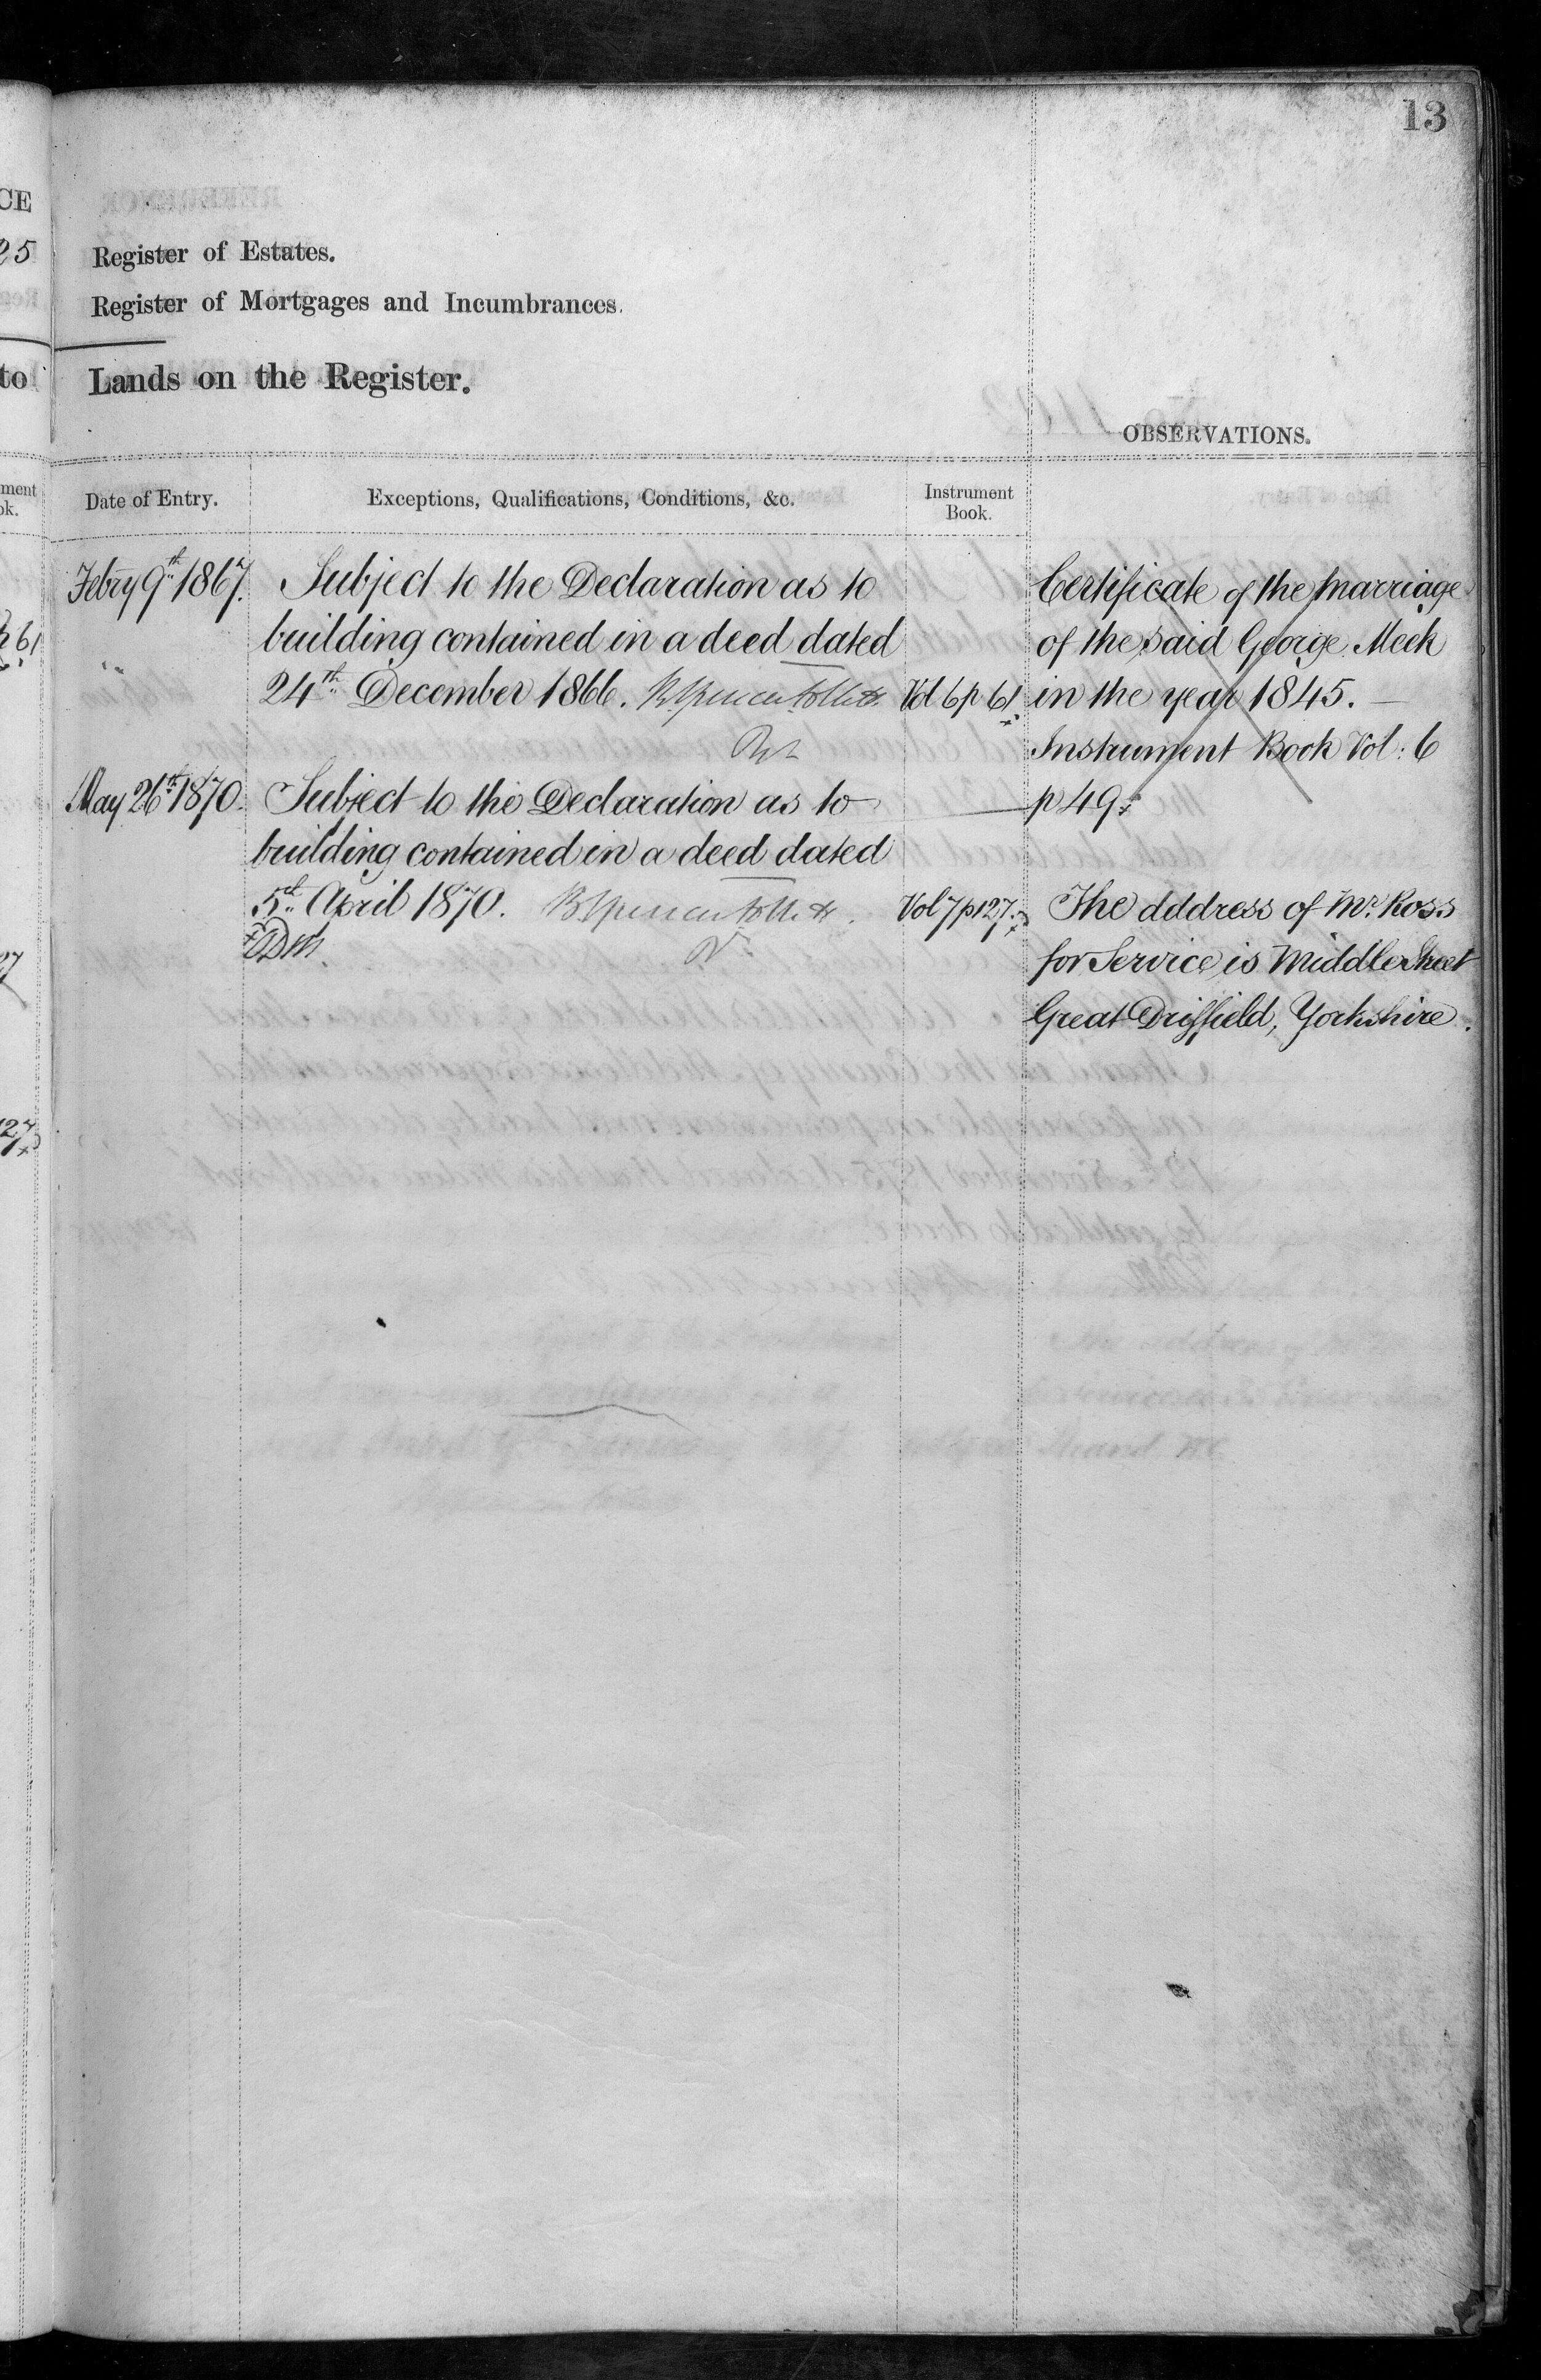 13
CE
25
Register of Estates.
Register of Mortgages and Incumbrances.
to
Lands on the Register.
OBSERVATIONS.
Date of Entry.
Exceptions, Qualifications, Conditions, &c.
Instrument
Book.
Febry 9th 1867.
Subject to the Declaration as to
building contained in a deed dated
24th December 1866.
Vol 6 p 61
Certificate of the marriage
of the said George Meek
in the year 1845. —
Instrument Book Vol: 6
p 49
May 26th 1870.
Subject to the Declaration as to
building contained in a deed dated
5th April 1870.
Vol 7 p 127
The address of Mr. Ross
for Service is Middle Street
Great Driffield, Yorkshire.